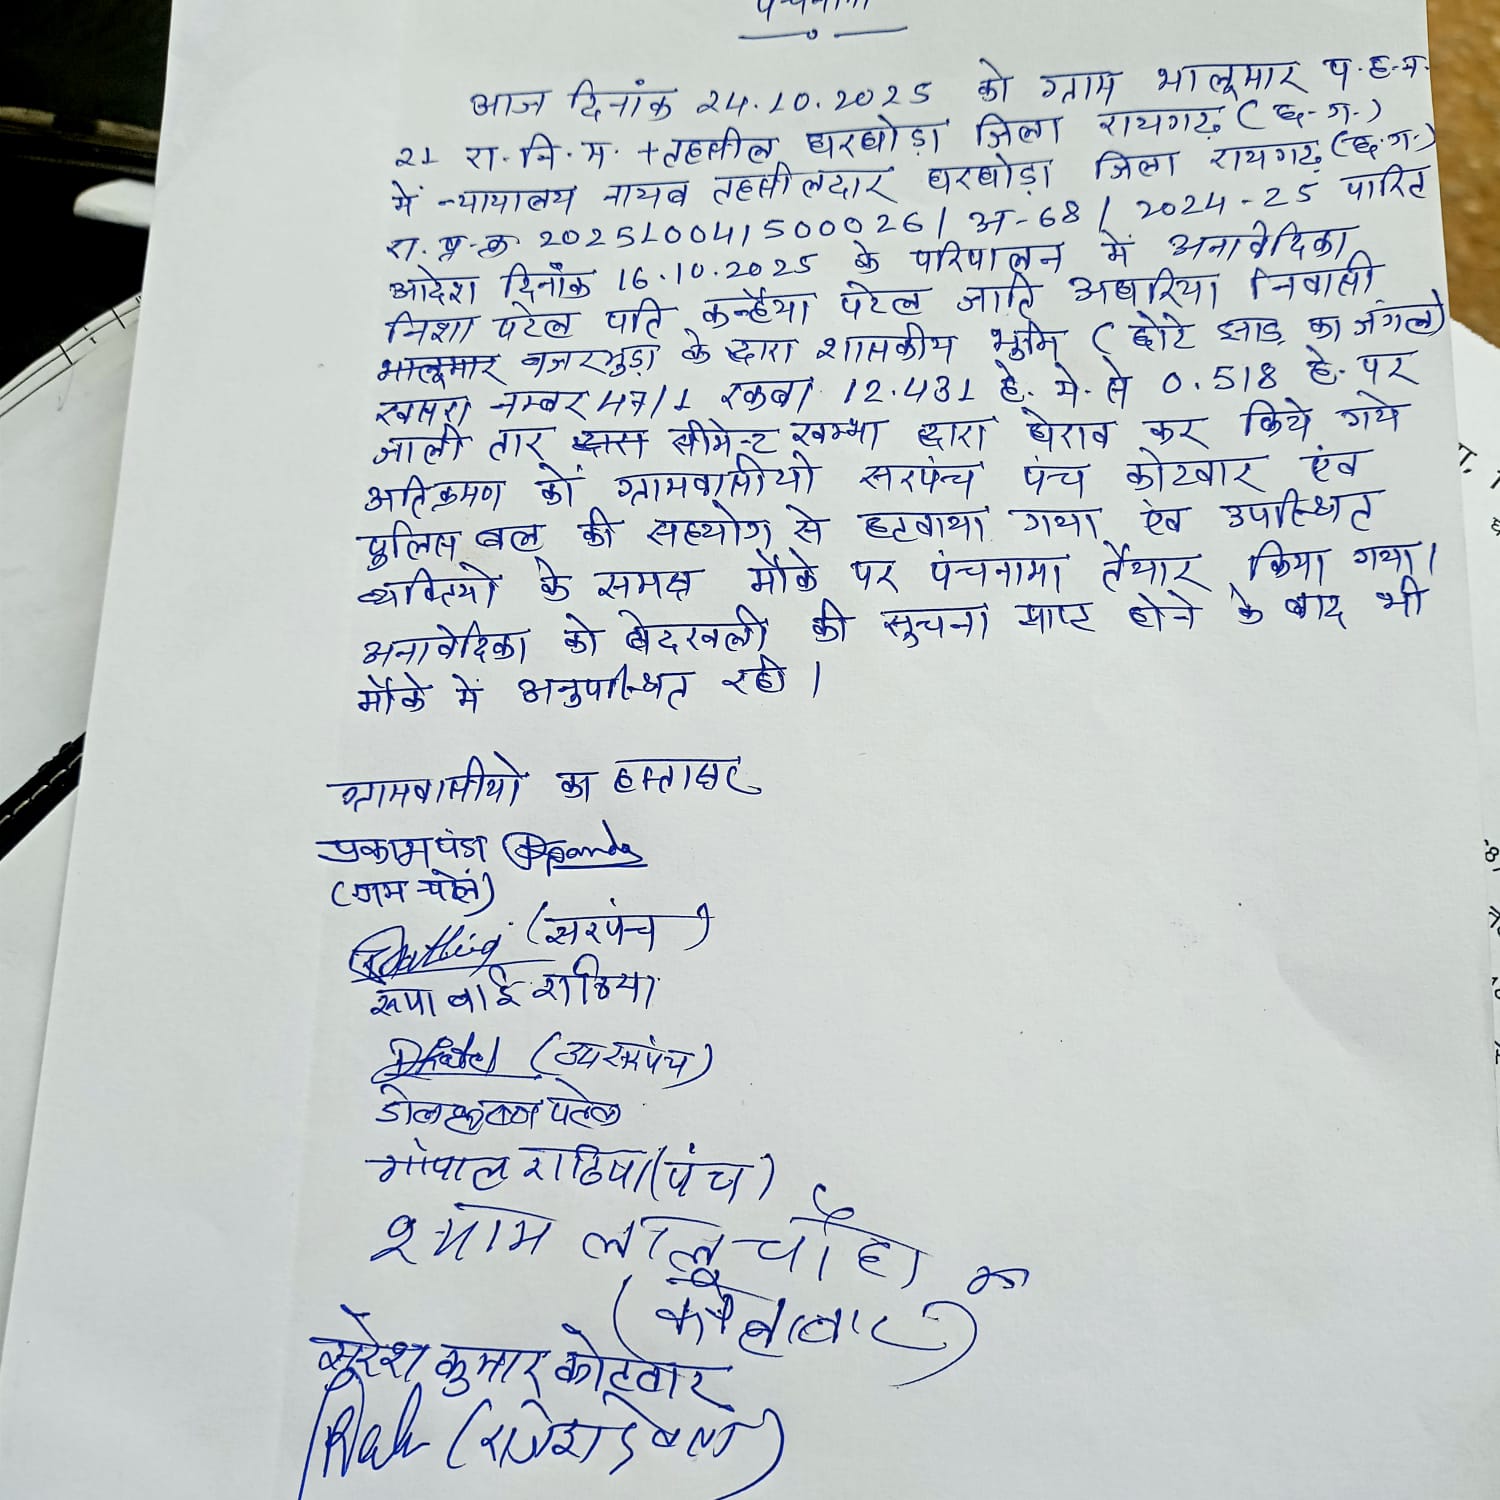 पंचनामा
आज दिनांक 24.10.2025 को ग्राम भालूमार प.ह.न.
21 रा.नि.म. + तहसील घरघोड़ा जिला रायगढ़ (छ.ग.)
में न्यायालय नायब तहसीलदार घरघोड़ा जिला रायगढ़ (छ.ग.)
रा.प्र.क्र 202510041500026 / अ-68 / 2024-25 पारित
आदेश दिनांक 16.10.2025 के परिपालन में अनावेदिका
निशा पटेल पति कन्हैया पटेल जाति अघरिया निवासी
भालूमार के द्वारा शासकीय भूमि (छोटे झाड़ का जंगल)
खसरा नम्बर 47/1 रकबा 12.431 हे. में से 0.518 हे. पर
जाली तार सीमेन्ट खम्भा द्वारा घेराव कर किये गये
अतिक्रमण को ग्रामवासीयो सरपंच पंच कोटवार एंव
पुलिस बल की सहयोग से हटवाया गया एंव उपस्थित
व्यक्तियो के समक्ष मौके पर पंचनामा तैयार किया गया।
अनावेदिका को बेदखली की सूचना प्राप्त होने के बाद भी
मौके में अनुपस्थित रही।
ग्रामवासीयो का हस्ताक्षर
(सरपंच)
रूपा बाई राठिया
(उपसरपंच)
पटेल
गोपाल राठिया (पंच)
श्याम लाल चौहा
सुरेश कुमार कोटवार